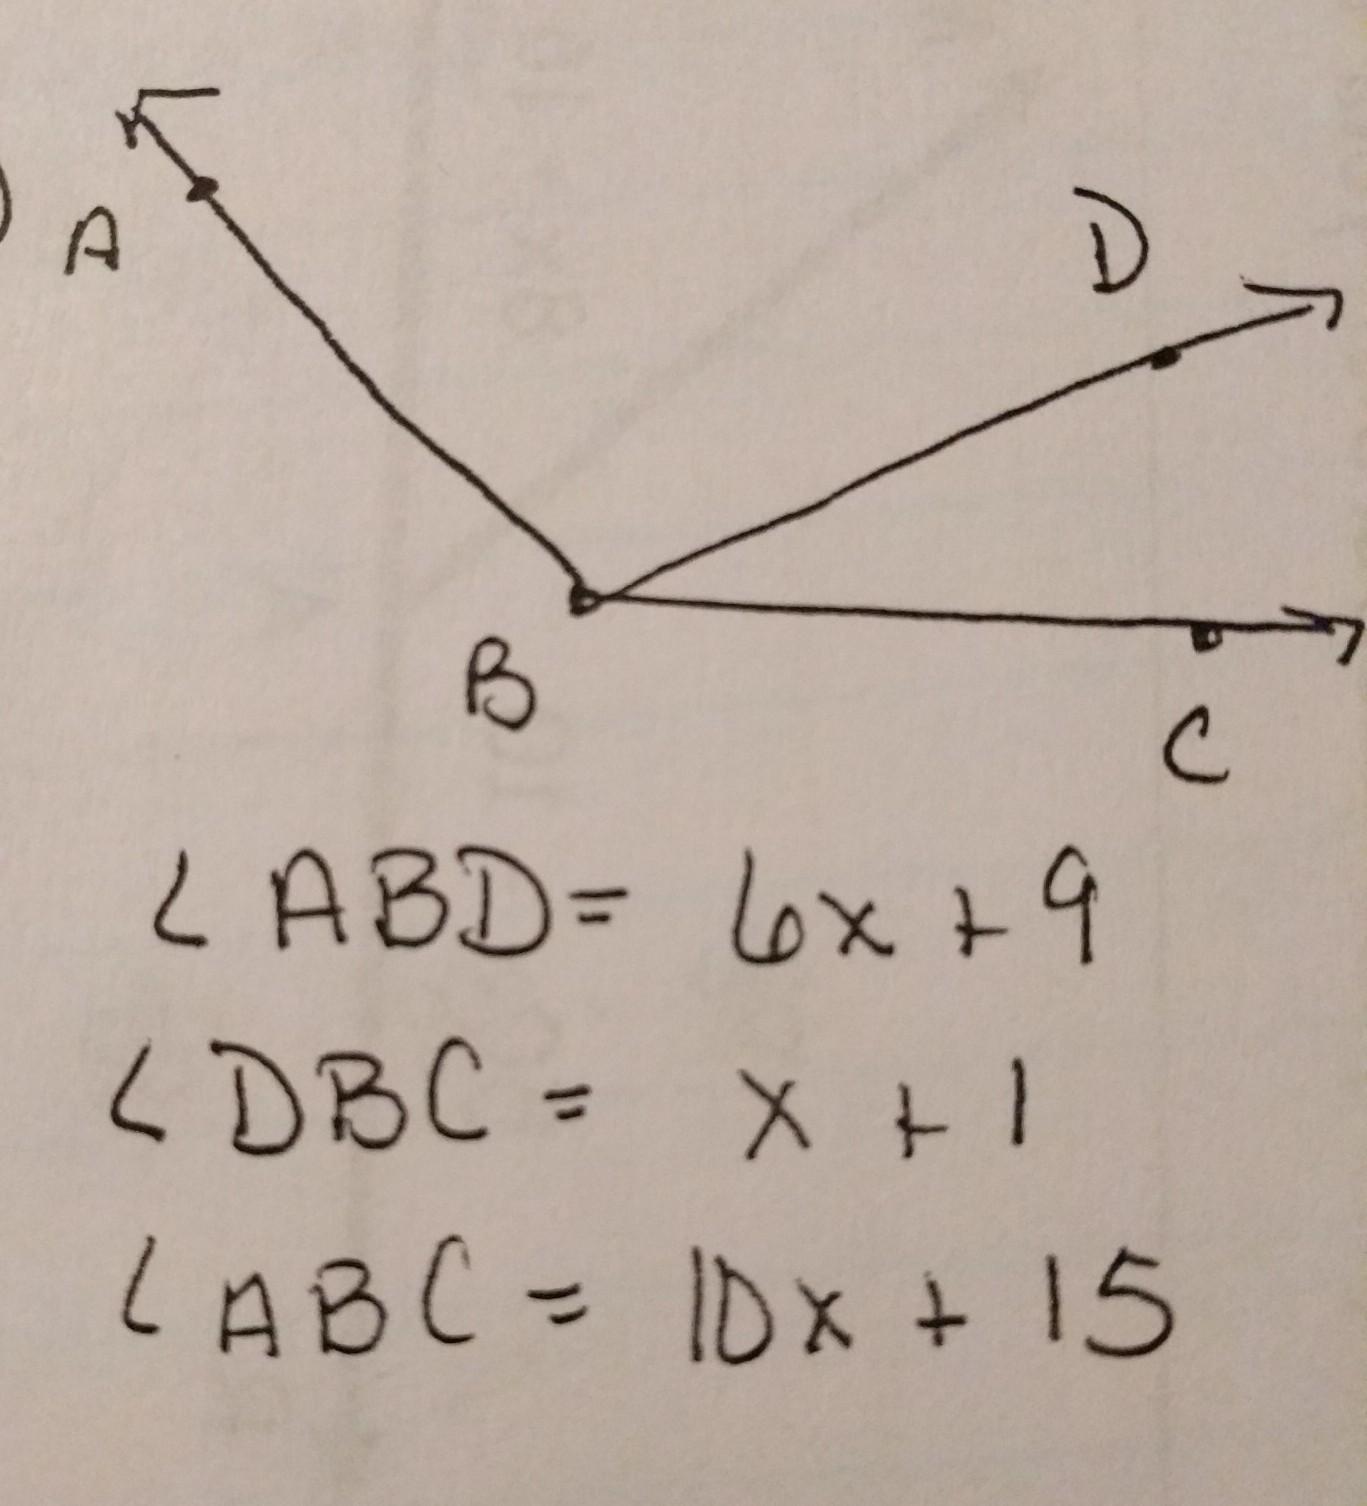 A
D
B
C
∠ABD = 6x + 9
∠DBC = x + 1
∠ABC = 10x + 15